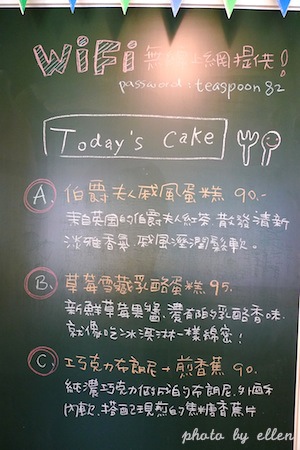 WiFi 無線上網提供!
password: teaspoon 82
Today's cake
A. 伯爵夫人戚風蛋糕 90.-
來自英國的伯爵夫人紅茶 散發清新
淡雅香氣 戚風溼潤鬆軟。
B. 草莓雪藏乳酪蛋糕 95.
新鮮草莓果醬,濃郁的乳酪香味.
就像吃冰淇淋一樣綿密!
C. 巧克力布朗尼+煎香蕉 90.
純濃巧克力做成的布朗尼,外酥
內軟.搭配現煎的焦糖香蕉片
photo by ellen